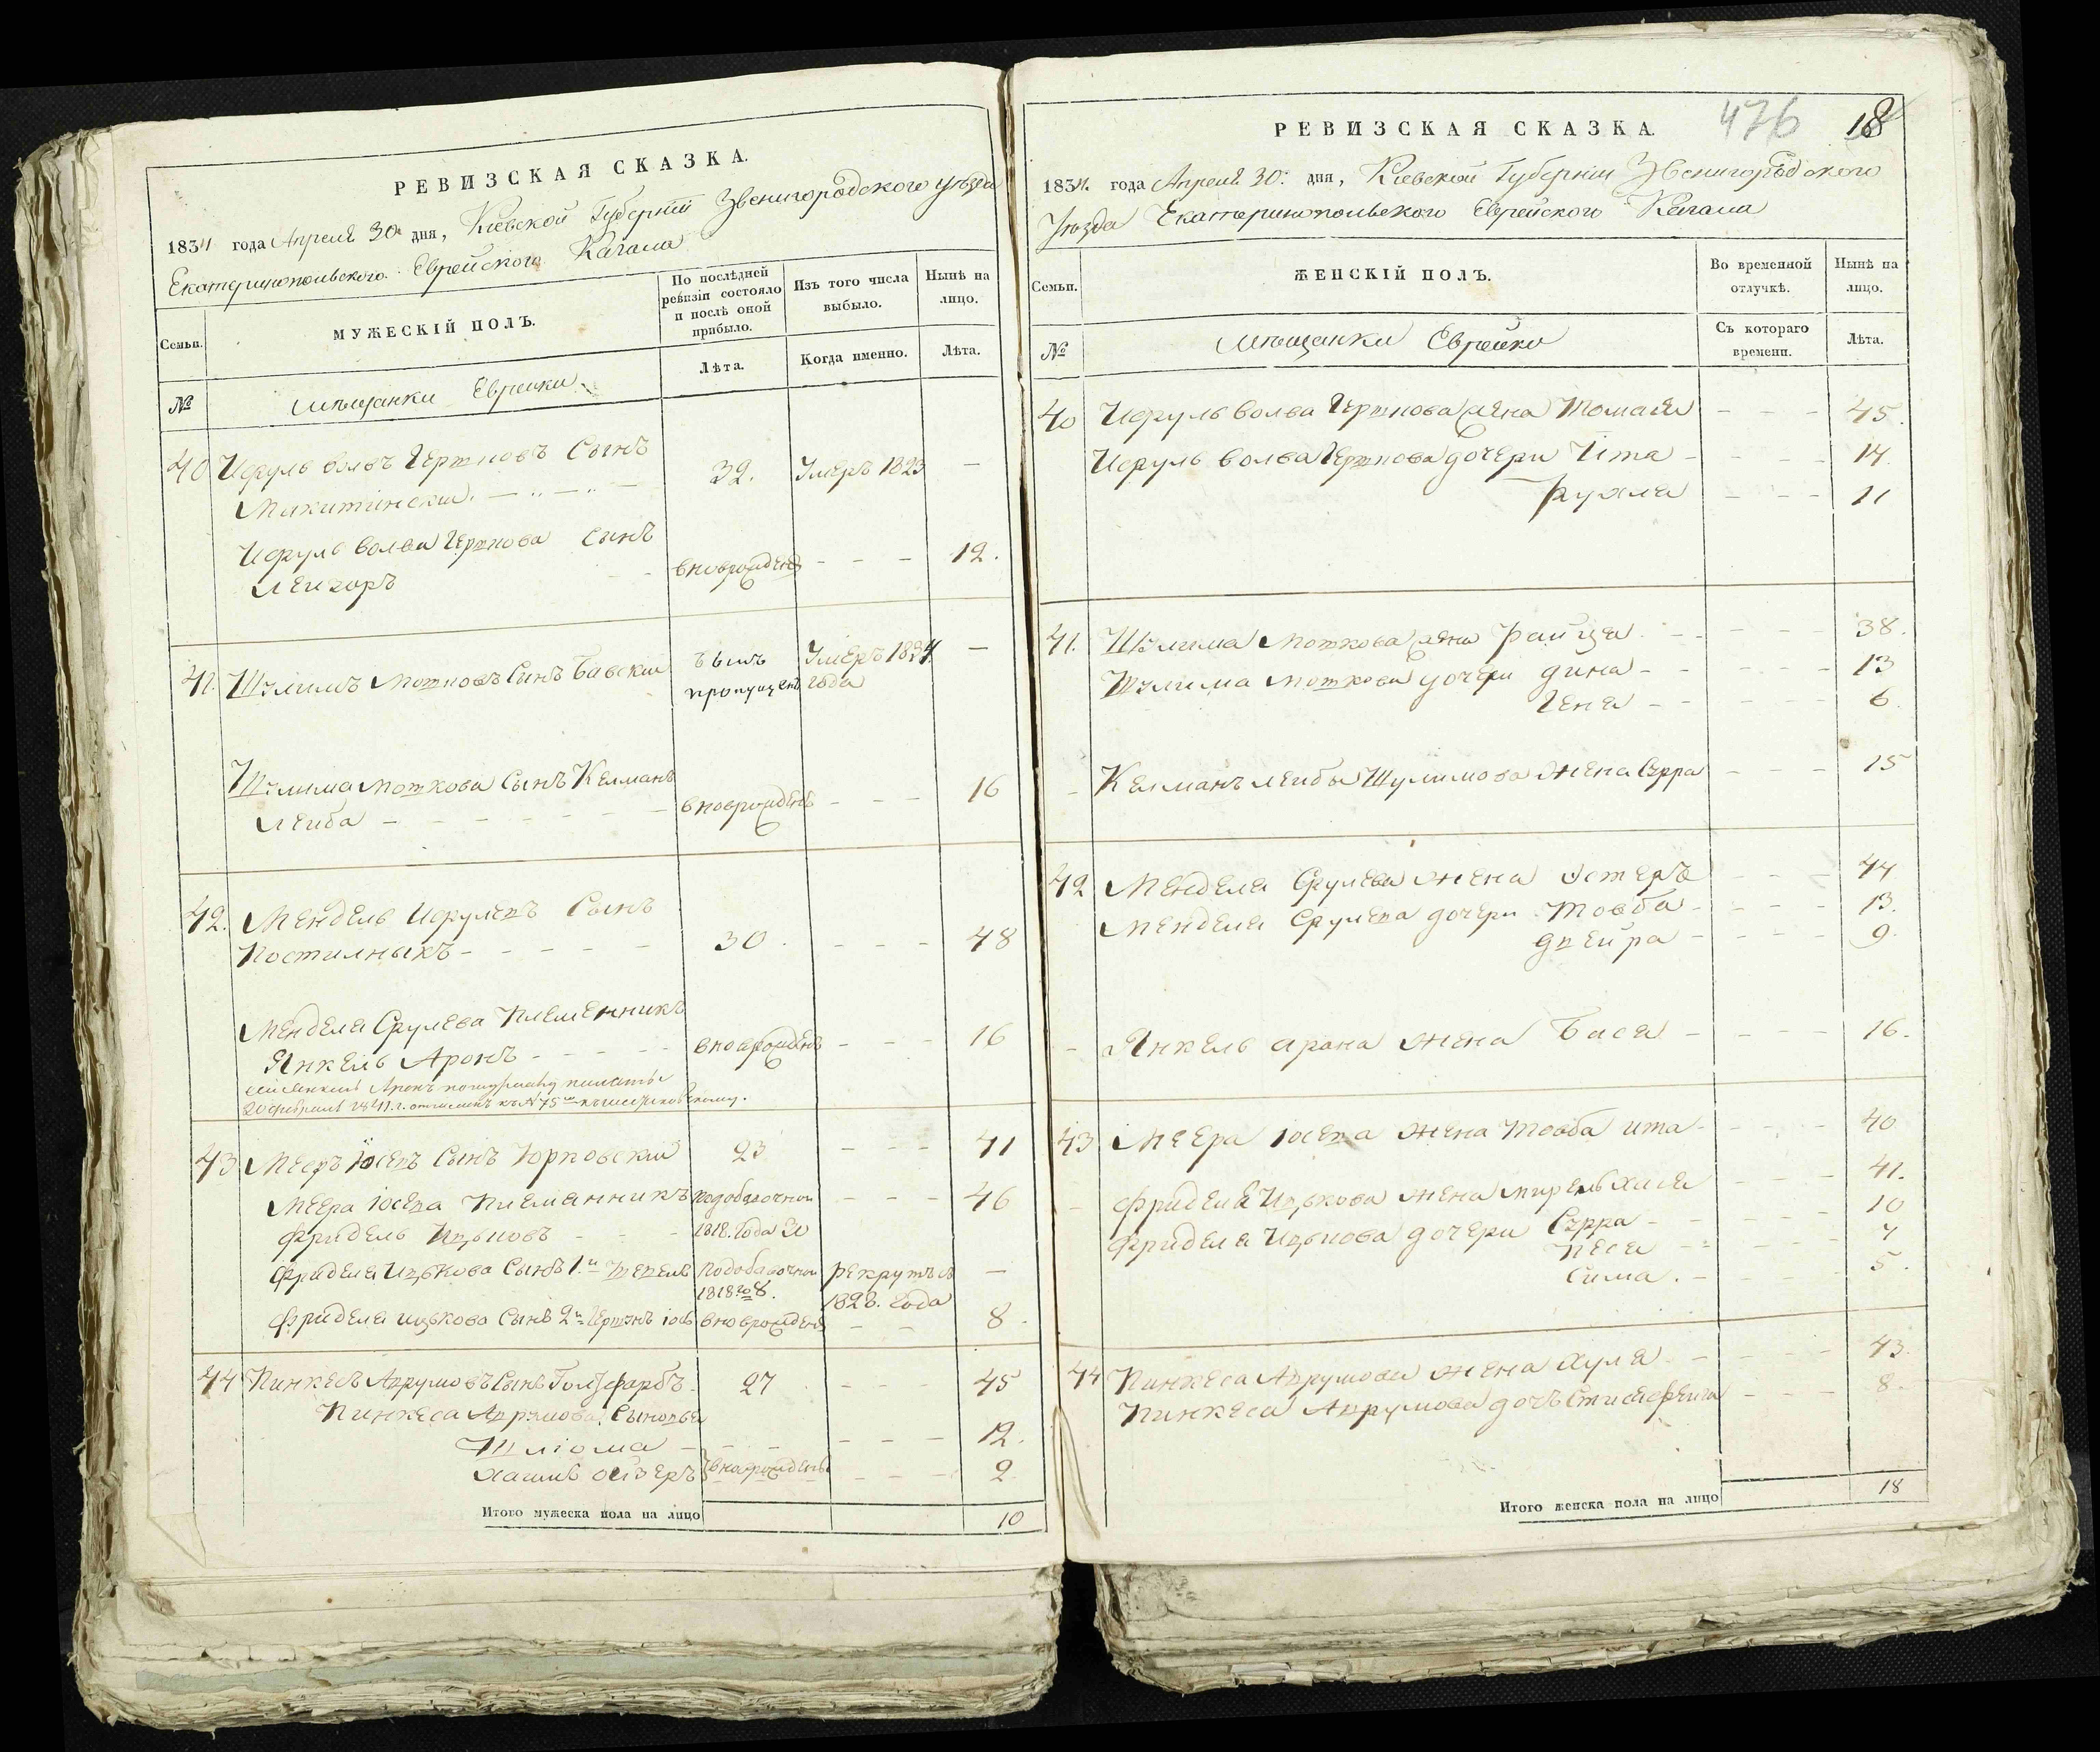 РЕВИЗСКАЯ СКАЗКА.
1834 года Апреля 30 дня, Киевской Губернии Звенигородского уезда
Екатеринопольского Еврейского Кагала
Семьи.
МУЖЕСКІЙ ПОЛЪ.
По послѣдней ревизіи состояло и послѣ оной прибыло.
Изъ того числа выбыло.
Нынѣ на лицо.
Лѣта.
Когда именно.
Лѣта.
№
мѣщанки Евреики
40 Исруль Волвъ Гершковъ Сынъ
Микитинский 32. Умеръ 1823 —
Исруль Волва Гершкова Сынъ
Лейзоръ вноврожденъ - - - 12.
41. Шулимъ Мошковъ Сынъ Бавский былъ пропущенъ Умеръ 1834 года —
Шулима Мошкова Сынъ Келманъ
Лейба - - - вноврожденъ - - - 16
42. Мендель Исрулевъ Сынъ
Постилныкъ - - - 30. - - - 48
Менделя Срулева Племенникъ
Янкель Аронъ - - - вноврожденъ - - - 16
43 Мееръ Іосевъ Сынъ Юрковский 23 - - - 41
Меера Іосева Племянникъ подобавочной - - - 46
Фридель Ицьковъ - - - 1818. Года 30
Фриделя Ицькова Сынъ 1.й Шепель подобавочной рекрутъ въ —
1818 го 8. 1828. Года
Фриделя Ицькова Сынъ 2й Гершнъ Іось вноврожденъ - - 8.
44 Пинкесъ Аврумовъ Сынъ Голцфарбъ 27 - - 45
Пинкеса Аврумова Сыновья
Шліома - - - - - - 12.
Хаимъ Ойзеръ вноврожденъ - - - 2
Итого мужеска пола на лицо 10
476 18
РЕВИЗСКАЯ СКАЗКА.
1834. года Апреля 30. дня, Киевской Губернии Звенигородского
Уезда Екатеринопольского Еврейского Кагала
Семьи.
ЖЕНСКІЙ ПОЛЪ.
Во временной отлучкѣ.
Нынѣ на лицо.
№
мѣщанки Евреики
Съ котораго времени.
Лѣта.
40 Исруль Волва Гершкова жена - - - 45.
Исруль Волва Гершкова дочери Ита - - - - 14.
Рухля - - - 11
41. Шулима Мошкова жена Райця. - - - - 38.
Шулима Мошкова дочери Дина - - - - - 13
Геня - - - - - 6.
- Келманъ Лейбы Шулимова жена Сурра - - - 15
42 Менделя Срулева жена Эстеръ - - - 44
Менделя Срулева дочери Товба - - - - 13.
Двейра - - - - 9.
- Янкель Арона жена Бася - - - - 16.
43 Меера Іосева жена Товба Ита - - - - 40
- Фриделя Ицькова жена Мирель Хася - - - 41.
Фриделя Ицькова дочери Сурра - - - - 10
Песя - - - - 7
Сима. - - - - 5.
44 Пинкеса Аврумова жена Хуля - - - - 43.
Пинкеса Аврумова дочь Фейга - - - 8.
Итого женска пола на лицо 18